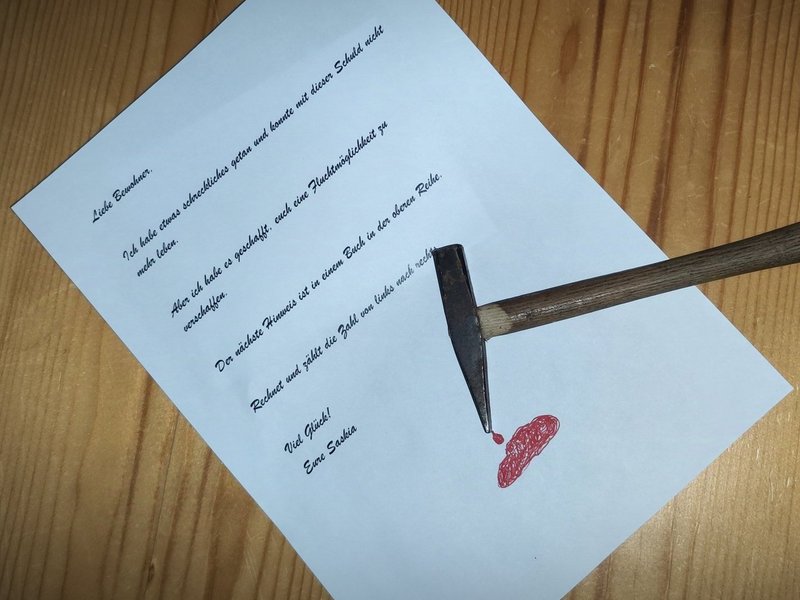 Liebe Bewohner,
Ich habe etwas schreckliches getan und konnte mit dieser Schuld nicht
mehr leben.
Aber ich habe es geschafft, euch eine Fluchtmöglichkeit zu
verschaffen.
Der nächste Hinweis ist in einem Buch in der oberen Reihe.
Rechnet und zählt die Zahl von links nach rechts
Viel Glück!
Eure Saskia